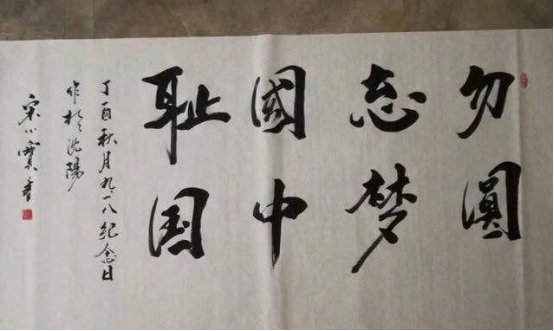 勿忘國耻
圓梦中国
丁酉秋月九一八纪念日
作於沈陽
宋小寶書